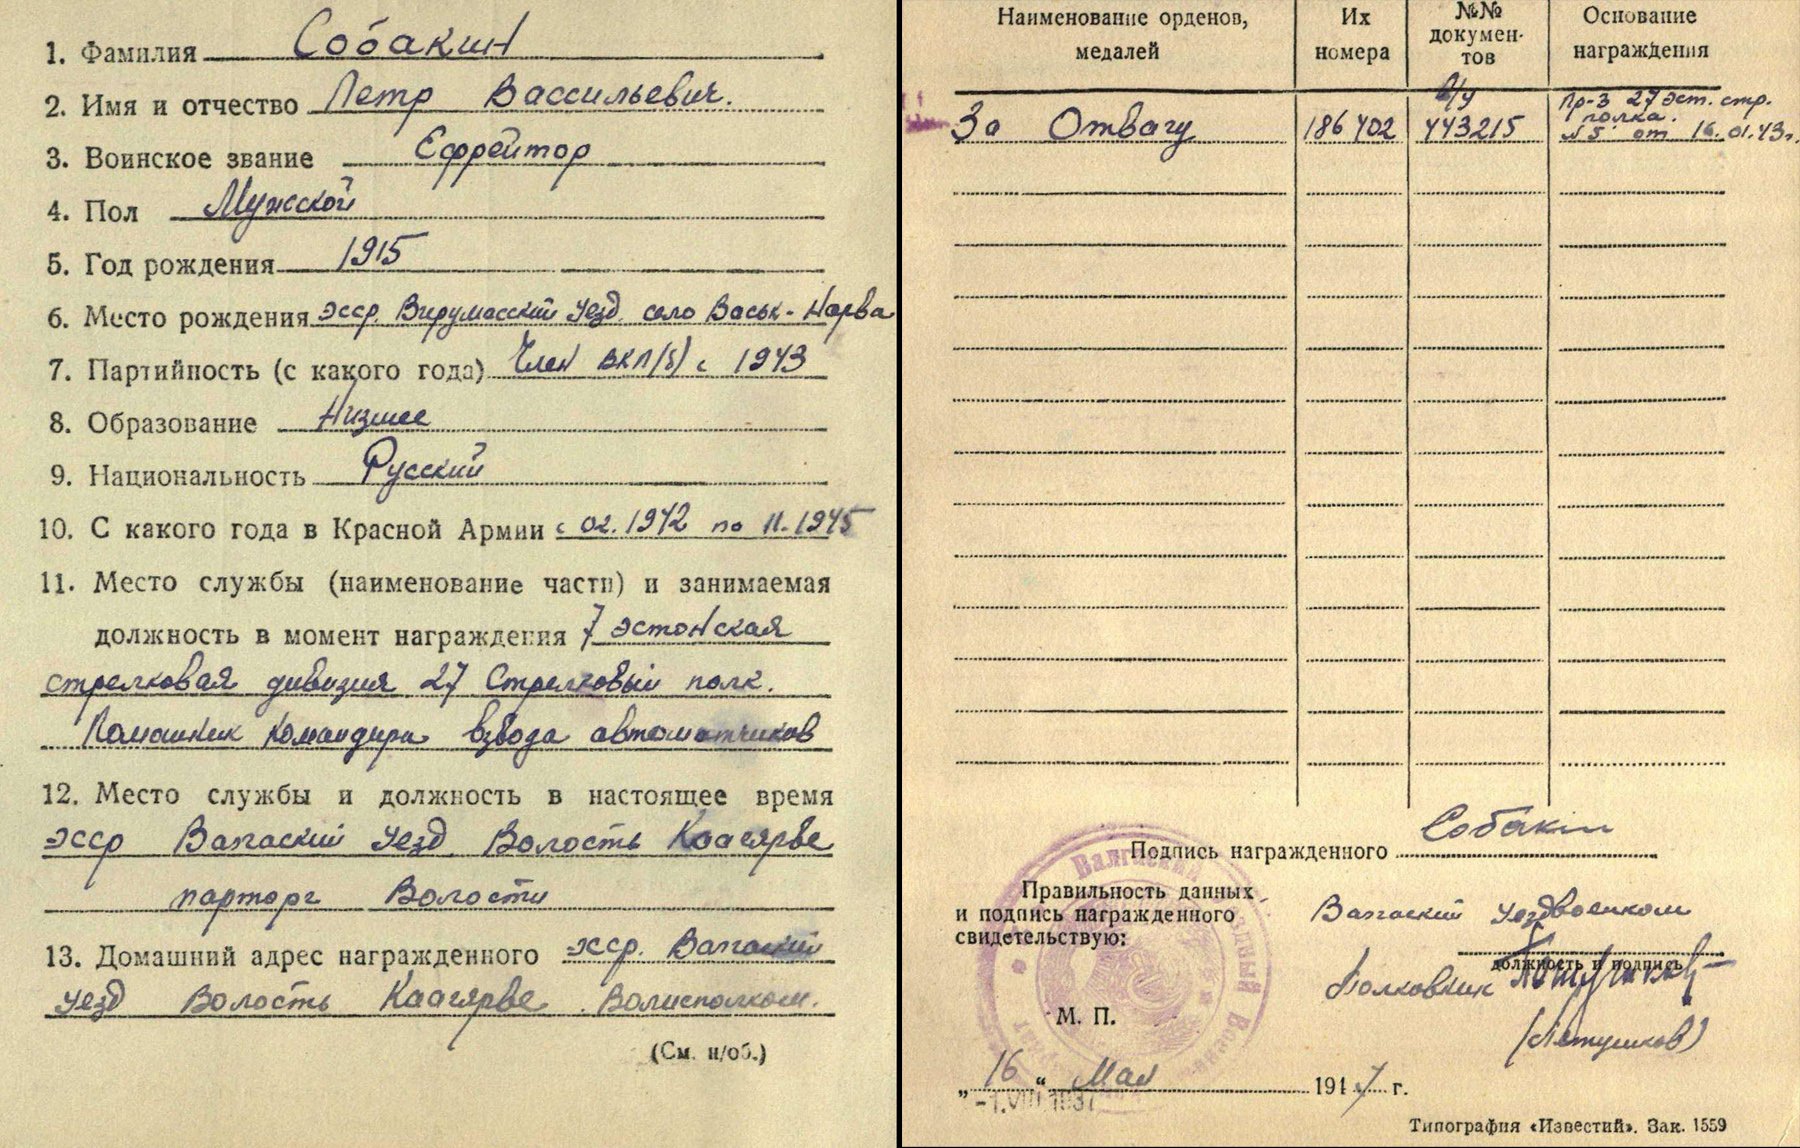 1. Фамилия Собакин
2. Имя и отчество Петр Вассильевич.
3. Воинское звание Ефрейтор
4. Пол Мужской
5. Год рождения 1915
6. Место рождения эсср. Вирумаский уезд. село Васьк-Нарва
7. Партийность (с какого года) Член ВКП(б) с 1943
8. Образование Низшее
9. Национальность Русский
10. С какого года в Красной Армии с 02.1942 по 11.1945
11. Место службы (наименование части) и занимаемая
должность в момент награждения 7 эстонская
стрелковая дивизия 27 Стрелковый полк.
Помошник командира взвода автоматчиков
12. Место службы и должность в настоящее время
эсср Валгаский уезд Волость Каагярве
парторг Волости
13. Домашний адрес награжденного эсср. Валгаский
уезд Волость Каагярве. Волисполком.
(См. н/об.)
Наименование орденов, медалей
Их номера
№№ документов
Основание награждения
За Отвагу 186402 в/у 443215 Пр-з 27 эст. стр. полка. №5 от 16.01.43г.
Подпись награжденного Собакин
Правильность данных
и подпись награжденного
свидетельствую:
Валгаский уездвоенком
должность и подпись
Полковник
(Петушков)
М. П.
Валгаский
„16“ Мая 1947 г.
Типография «Известий». Зак. 1559